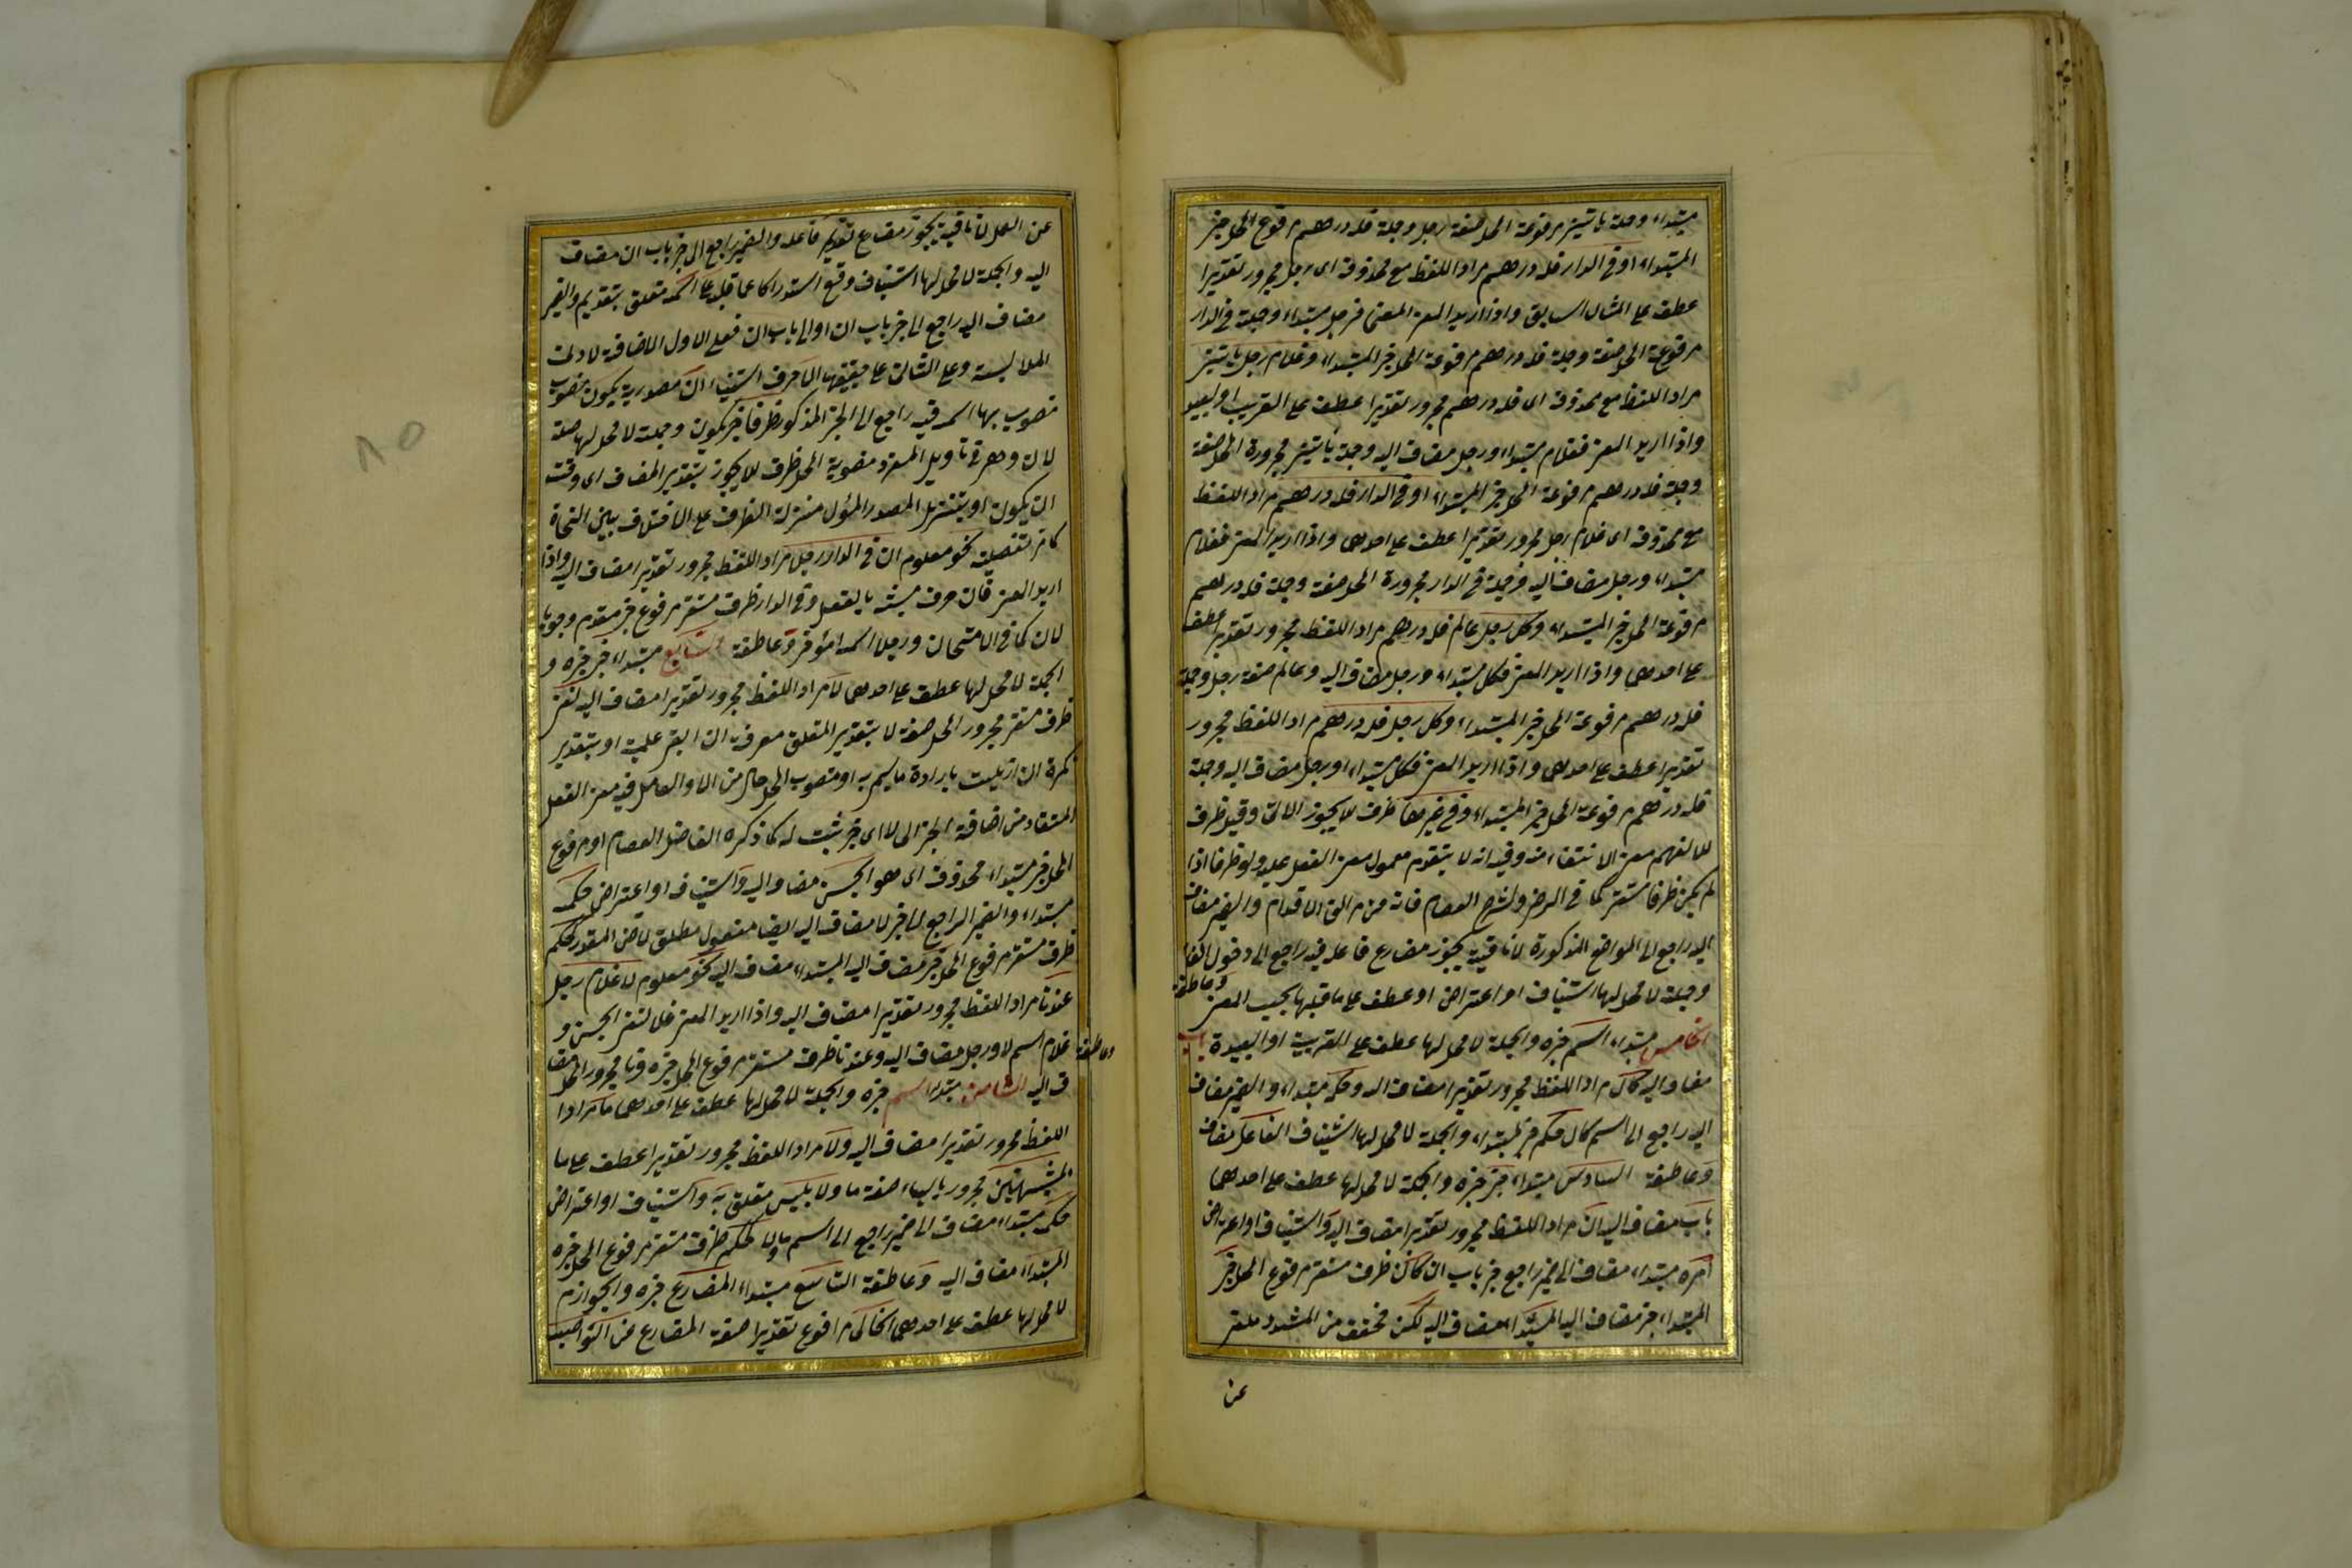 مبتداء وجملة ياتيني مرفوعة المحل صفة رجل وجملة فله درهم مرفوع المحل خبر
المبتداء او في الدار فله درهم مراد اللفظ مع محذوفه اى رجل مجرور تقديرا
عطف على المثال السابق واذا اريد المعنى فرجل مبتداء وجملة في الدار
مرفوعة المحل صفة وجملة فله درهم مرفوعة المحل خبر المبتداء وغلام رجل ياتيني
مراد اللفظ مع محذوفه اى فله درهم مجرور تقديرا عطف على القريب او البعيد
واذا اريد المعنى فغلام مبتداء ورجل مضاف اليه وجملة ياتيني مجرورة المحل صفة
وجملة فله درهم مرفوعة المحل خبر المبتداء او في الدار فله درهم مراد اللفظ
مع محذوفه اى غلام رجل مجرور تقديرا عطف على احدهما واذا اريد المعنى فغلام
مبتداء ورجل مضاف اليه فجملة في الدار مجرورة المحل صفة وجملة فله درهم
مرفوعة المحل خبر المبتداء وكل رجل عالم فله درهم مراد اللفظ مجرور تقديرا عطف
على احدهما واذا اريد المعنى فكل مبتداء ورجل مضاف اليه وعالم صفة رجل وجملة
فله درهم مرفوعة المحل خبر المبتداء وكل رجل فله درهم مراد اللفظ مجرور
تقديرا عطف على احدهما واذا اريد المعنى فكل مبتداء ورجل مضاف اليه وجملة
فله درهم مرفوعة المحل خبر المبتداء وفي غيرها ظرف للايجوز الآتى وقيل ظرف
للا لفهم معنى الانتفاء منه وفيه انه لا يتقدم معمول معنى الفعل عليه ولو ظرفا اذا
لم يكن ظرفا مستقر كما في الرضى ولشرح العصام فانه من مزالق الاقدام والضمير مضاف
اليه راجع الى المواضع المذكورة لا نافية يجوز مضارع فاعله فيه راجع الى دخول الفاء
وجملة لا محل لها استيناف او اعتراض او عطف على ما قبلها بحسب المعنى وعاطفة
الخامس مبتداء اسم خبره والجملة لا محل لها عطف على القريبة او البعيدة باب
مضاف اليه كان مراد اللفظ مجرور تقديرا مضاف اليه وحكمه مبتداء والضمير مضاف
اليه راجع الى اسم كان حكم خبر المبتداء والجملة لا محل لها استيناف الفاعل مضاف
وعاطفة السادس مبتداء خبر خبره والجملة لا محل لها عطف على احدهما
باب مضاف اليه ان مراد اللفظ مجرور تقديرا مضاف اليه واستيناف او اعتراض
امره مبتداء مضاف الى ضمير راجع خبر باب ان كان ظرف مستقر مرفوع المحل خبر
المبتداء خبر مضاف اليه المبتداء مضاف اليه لكن مخفف من المشدد ملغى
عن
عن العمل لا نافية يجوز مضارع تقديم فاعله والضمير راجع الى خبر باب ان مضاف
اليه والجملة لا محل لها استيناف وقع استدراكا عما قبله على اسمه متعلق بتقديم والضمير
مضاف اليه راجع الى خبر باب ان او الى باب ان فعلى الاول الاضافة لادنى
الملابسة وعلى الثانى على حقيقتها الا حرف استثناء ان مصدرية يكون منصوب
منصوب بها اسمه فيه راجع الى الخبر المذكور ظرفا خبر يكون وجملة لا محل لها صلة
لان وهى في تاويل المفرد منصوبة المحل ظرف للايجوز بتقدير المضاف اى وقت
ان يكون او بتنزيل المصدر المؤل منزلة الظرف على الاختلاف بين النحاة
كما مر تفصيله نحو معلوم ان في الدار رجلا مراد اللفظ مجرور تقديرا مضاف اليه واذا
اريد المعنى فان حرف مشبه بالفعل وفي الدار ظرف مستقر مرفوع خبر مقدم وجوبا
لان كما في الامتحان ورجلا اسمه مؤخر وعاطفة السابع مبتداء خبر خبره و
الجملة لا محل لها عطف على احدهما لا مراد اللفظ مجرور تقديرا مضاف اليه لنفى
ظرف مستقر مجرور المحل صفة لا بتقدير المتعلق معرفة ان ابقى علمية او بتقدير
نكرة ان ازيلت بارادة ما يسمى به او منصوب المحل حال من لا والعامل فيه معنى الفعل
المستفاد من اضافة الخبر الى لا اى خبر ثبت له كما ذكره الفاضل العصام او مرفوع
المحل خبر مبتداء محذوف اى هو الجنس مضاف اليه واستيناف او اعتراض حكمه
مبتداء والضمير الراجع الى خبر لا مضاف اليه ايضا مفعول مطلق لاض المقدر كحكم
ظرف مستقر مرفوع المحل خبر مضاف اليه المبتداء مضاف اليه نحو معلوم لا غلام رجل
عندنا مراد اللفظ مجرور تقديرا مضاف اليه واذا اريد المعنى فلا لنفى الجنس و
غلام اسم لا ورجل مضاف اليه وعندنا ظرف مستقر مرفوع المحل خبره ونا مجرور المحل مضا
وعاطفة
ف اليه الثامن مبتدا اسم خبره والجملة لا محل لها عطف على احدهما ما مراد
اللفظ مجرور تقديرا مضاف اليه ولا مراد اللفظ مجرور تقديرا عطف على ما
المشبهتين مجرور بالياء صفة ما ولا بليس متعلق به واستيناف او اعتراض
حكمه مبتداء مضاف الى ضمير راجع الى اسم ما ولا كحكم ظرف مستقر مرفوع المحل خبره
المبتداء مضاف اليه وعاطفة التاسع مبتداء المضارع خبره والجوازم
لا محل لها عطف على احدهما الخالى مرفوع تقديرا صفة المضارع من النواصب
٨٥